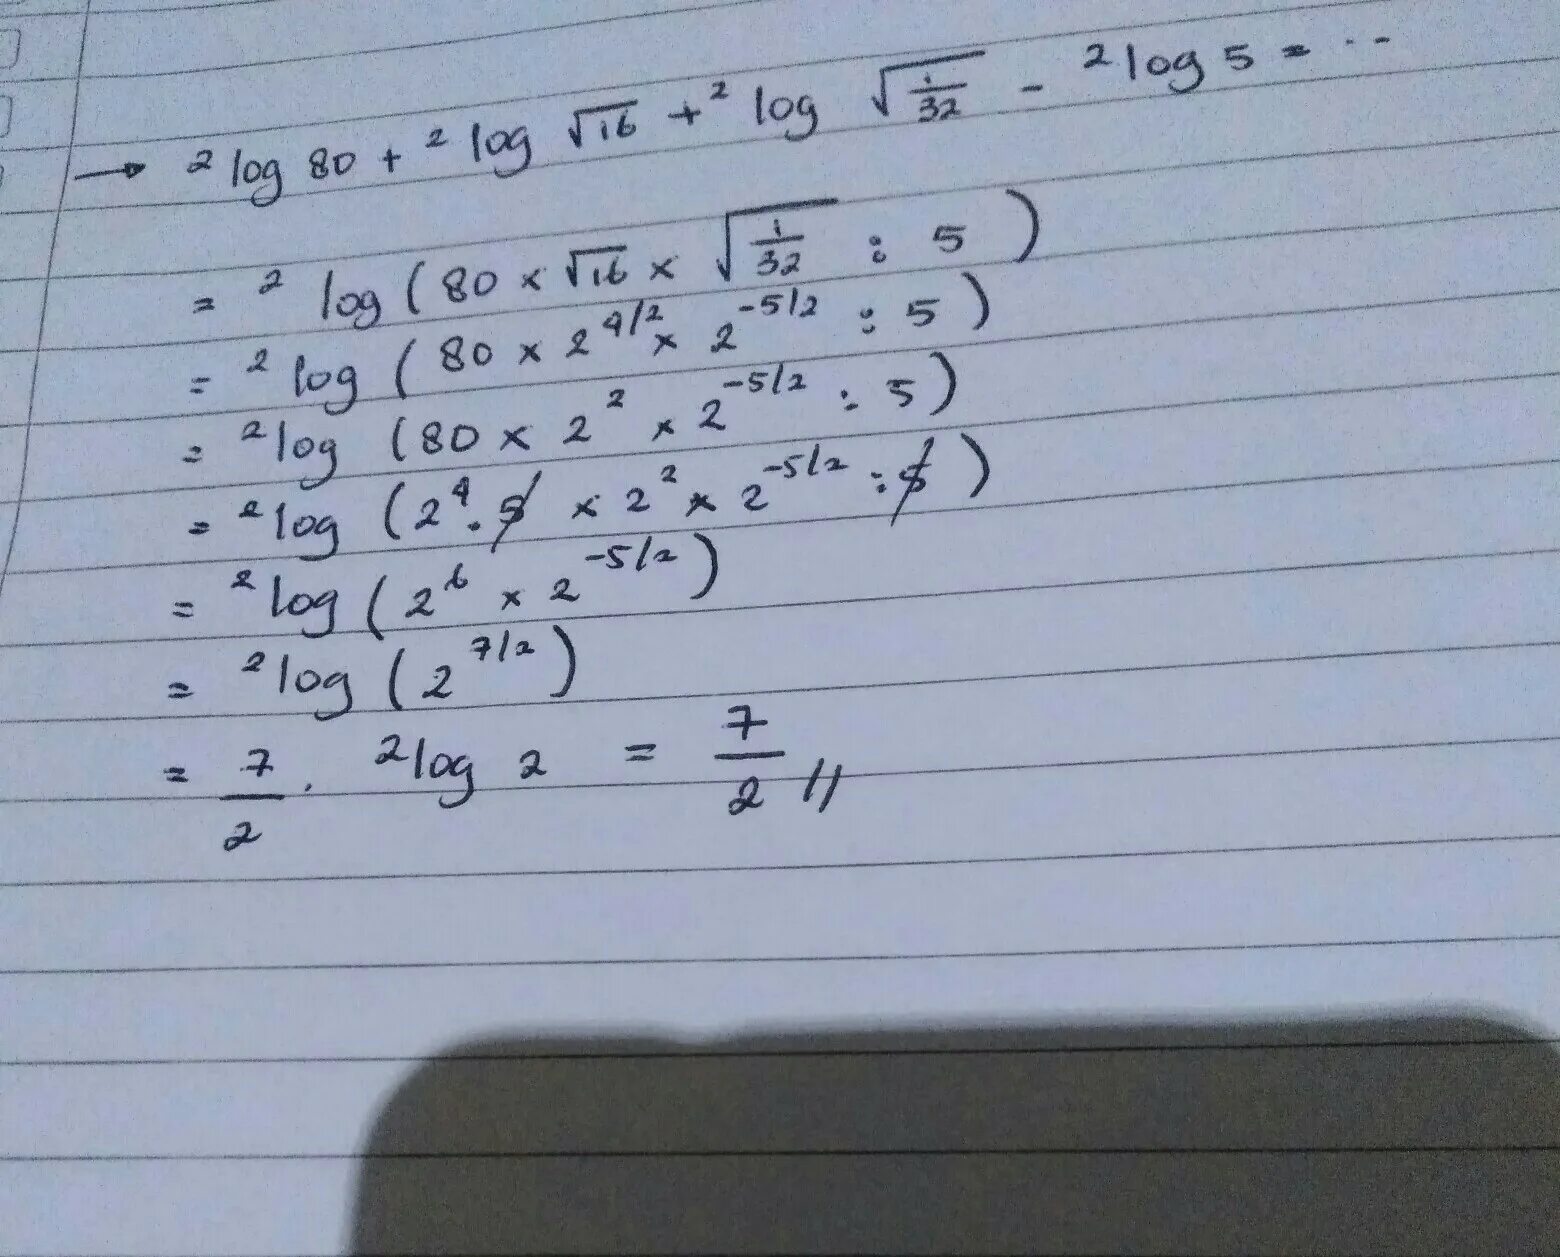 → ²log 80 + ²log √16 + ²log √(1/32) - ²log 5 = ...
= ²log (80 × √16 × √(1/32) : 5)
= ²log (80 × 2^4/2 × 2^-5/2 : 5)
= ²log (80 × 2^2 × 2^-5/2 : 5)
= ²log (2^4 . 5 × 2^2 × 2^-5/2 : 5)
= ²log (2^6 × 2^-5/2)
= ²log (2^7/2)
= 7/2 . ²log 2 = 7/2 //